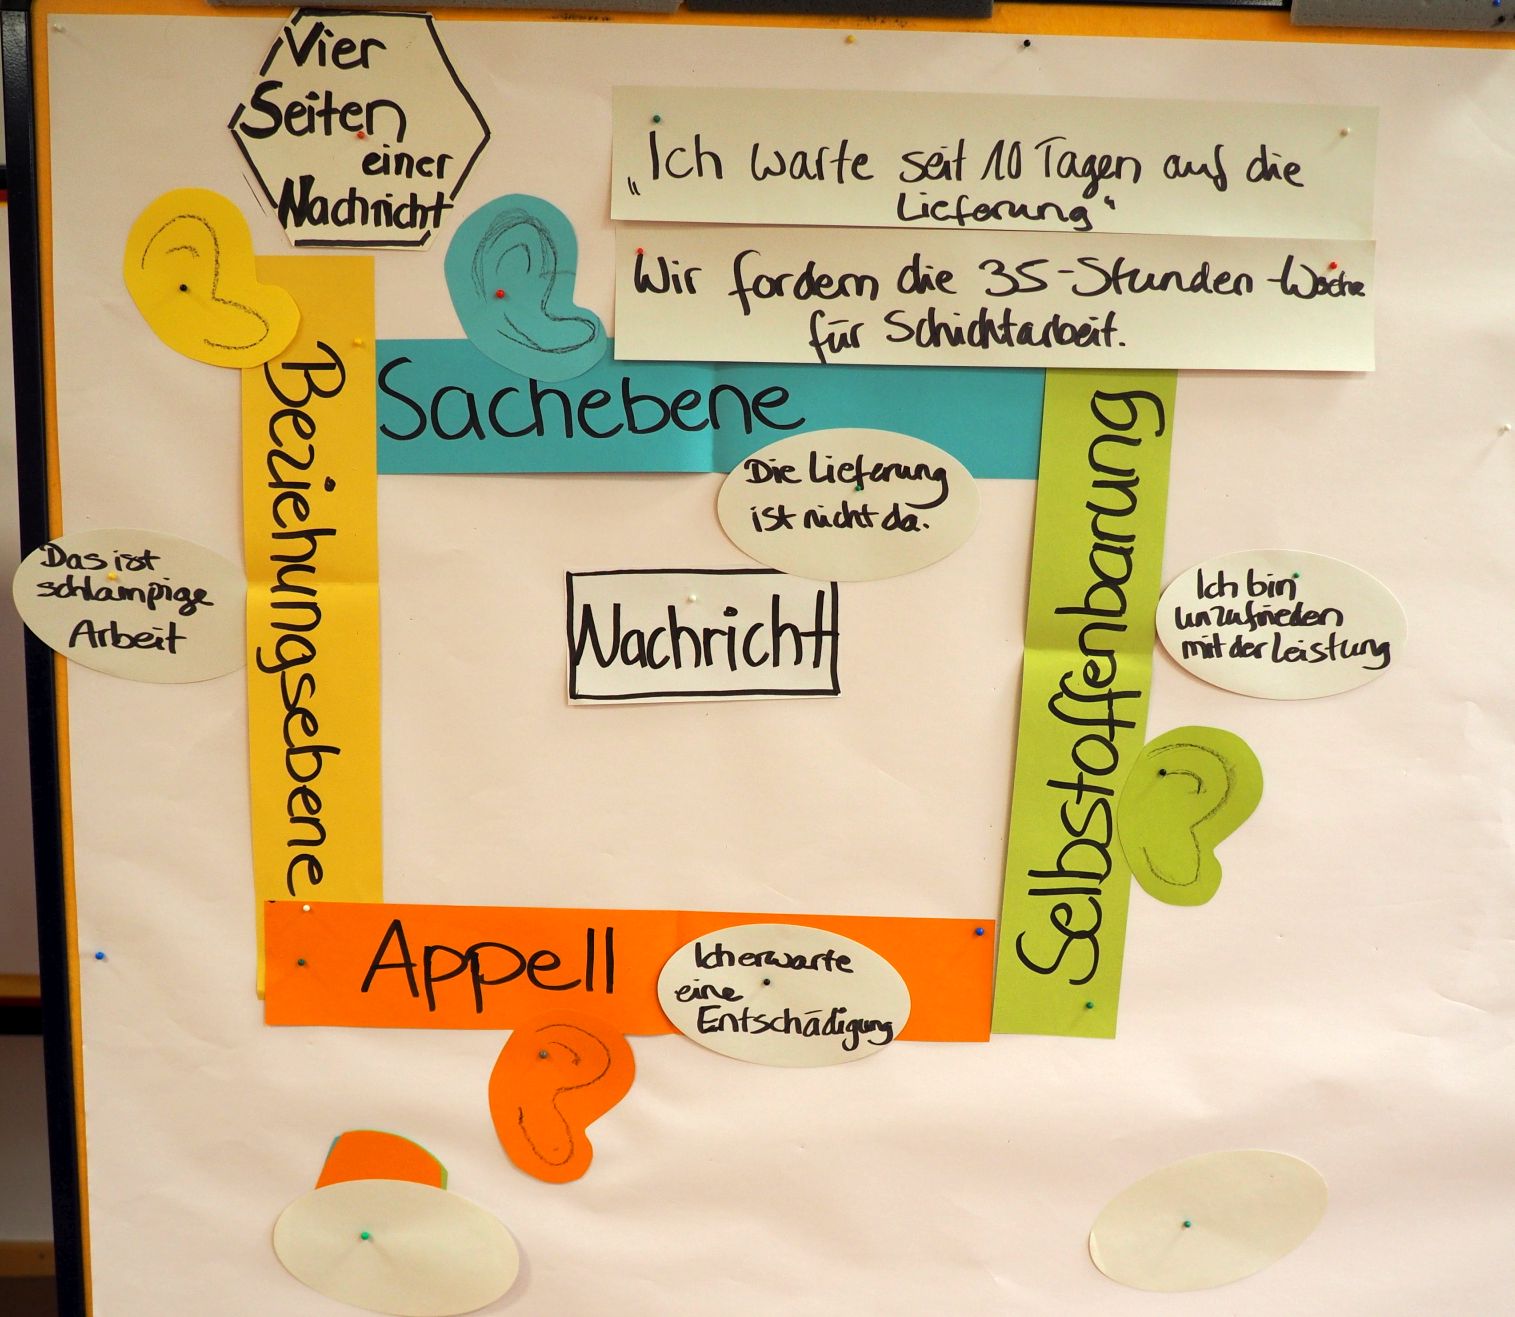 Vier
Seiten
einer
Nachricht
„Ich warte seit 10 Tagen auf die
Lieferung“
Wir fordern die 35-Stunden-Woche
für Schichtarbeit.
Beziehungsebene
Sachebene
Die Lieferung
ist nicht da.
Selbstoffenbarung
Das ist
schlampige
Arbeit
Nachricht
Ich bin
unzufrieden
mit der Leistung
Appell
Ich erwarte
eine
Entschädigung